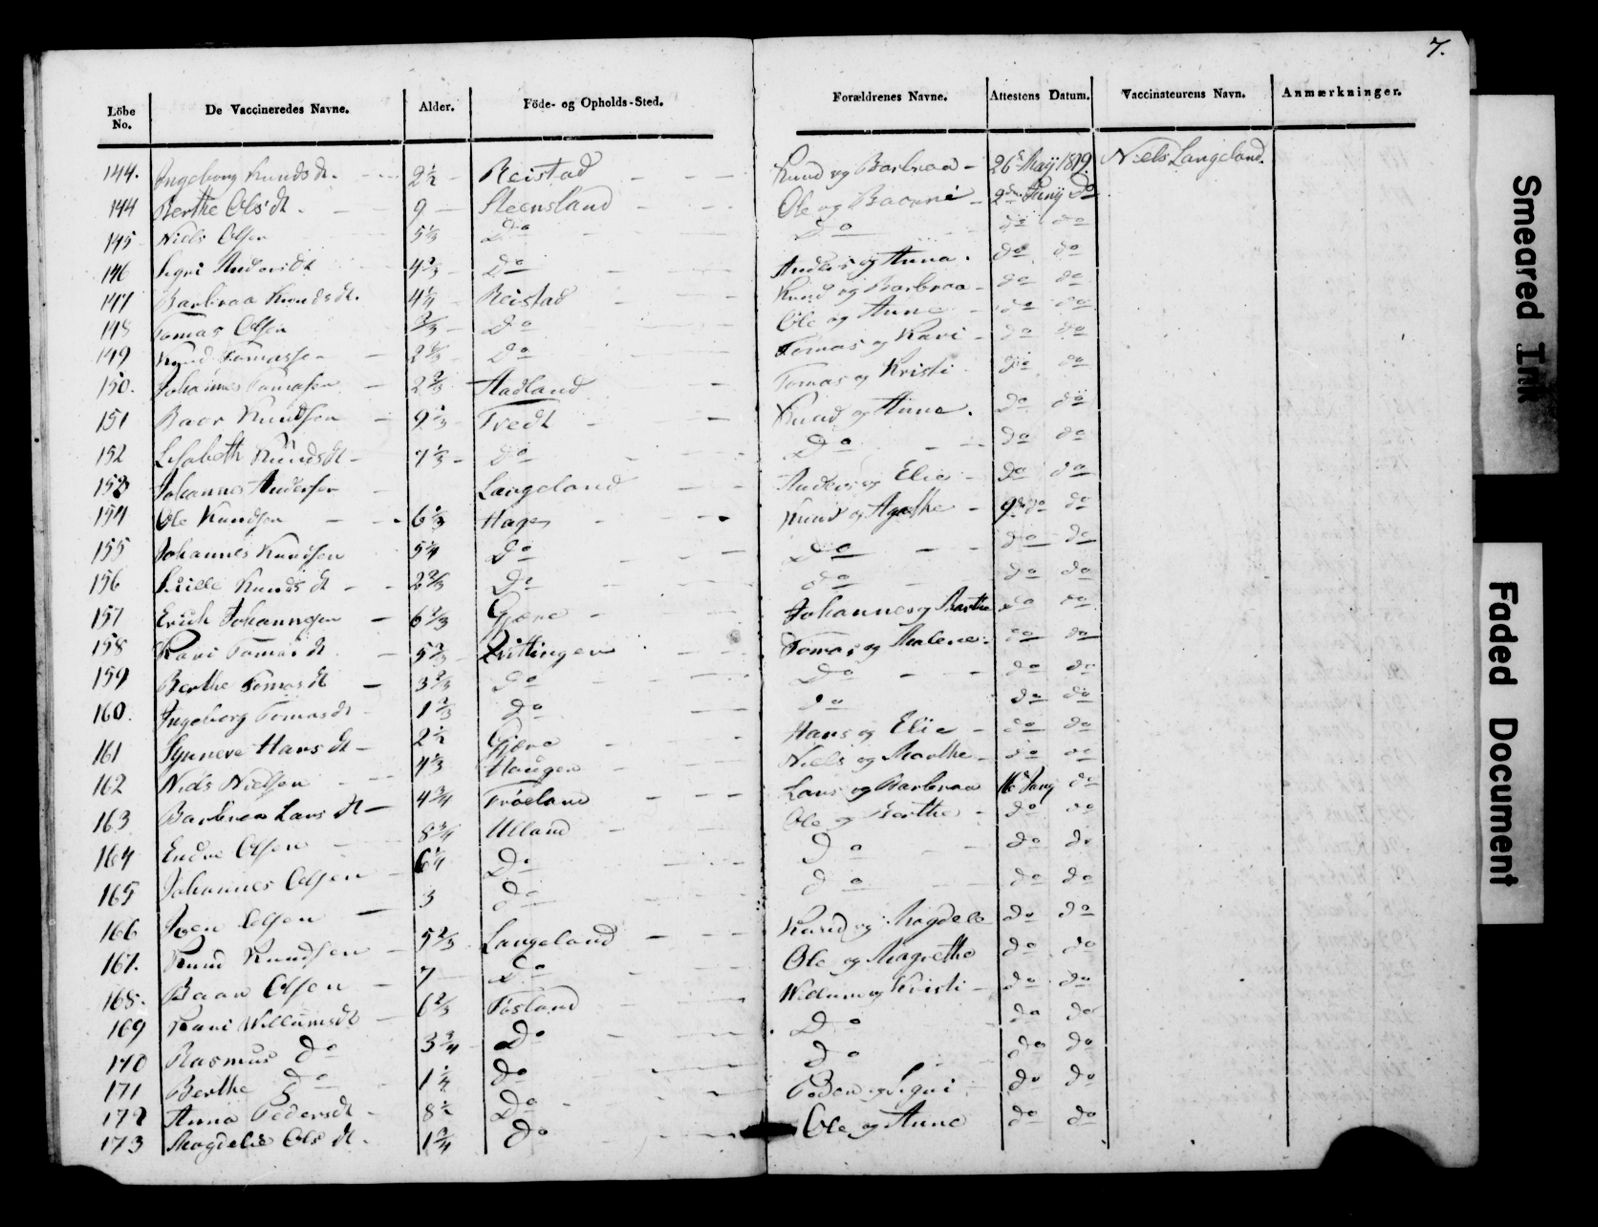 7.
Löbe No. De Vaccineredes Navne. Alder. Föde- og Opholds-Sted. Forældrenes Navne. Attestens Datum. Vaccinateurens Navn. Anmærkninger.
144. Ingeborg Knudsdt. 2½ Reistad Knud og Barbraa 26 Maij 1819. Niels Langeland.
144 Berthe Olsdt. 9 Steensland Ole og 2den Junij do
145 Niels Olsen 5⅓ Do Do do do
146 Sigri Andersdt 4⅔ Do Anders og Anna. do do
147 Barbraa Knudsdt. 4¼ Reistad Knud og Barbraa do do
148 Tomas Olsen ⅔ Do Ole og Anna do do
149 Knud Tomasse 2⅓ Do Tomas og Kari do do
150. Johannes Tomasen 2⅔ Hadland Tomas og Kristi do do
151 Baar Knudsen 9⅓ Tredt Knud og Anna. do do
152 Lisabeth Knudsdt 7⅓ Do Do do do
153 Johannes Andersen Langeland Anders og Elie do do
154 Ole Knudsen 6⅓ Hage Knud og Agathe 9de do do
155 Johannes Knudsen 5¼ Do Do do do
156 Knudsdt 2⅔ Do do do do
157 Erich Johannesen 6⅔ Gjære Johannes og Marthe do do
158 Kari Tomasdt 5⅔ Tomas og Malene. do do
159 Berthe Tomasdt 3⅔ Do Do do do
160. Ingeborg Tomasdt 1⅔ Do do do do
161 Synneve Hansdt 2½ Gjære Hans og Elie do do
162 Niels Nielsen 4⅔ Haugen Niels og Marthe do do
163 Barbraa Larsdt 4¾ Trøeland Lars og Barbraa 16 Junij do
164 Endre Olsen 8¾ Ulland Ole og Berthe do do
165 Johannes Olsen 6¼ Do Do do do
166 Iver Olsen 3 do do do do
167. Knud Knudsen 5⅔ Langeland Knud og Magdele do do
168. Baar Olsen 7 Do Ole og Magrethe do do
169 Kari Willumsdt 6⅔ Fosland Willum og Kristi do do
170 Rasmus Do 3¾ Do Do do do
171 Berthe Do 1½ Do Do do do
172 Anna Pedersdt 8½ Do Peder og Sigri do do
173 Magdele Olsdt. 1¾ Do Ole og Anna do do
Smeared Ink
Faded Document